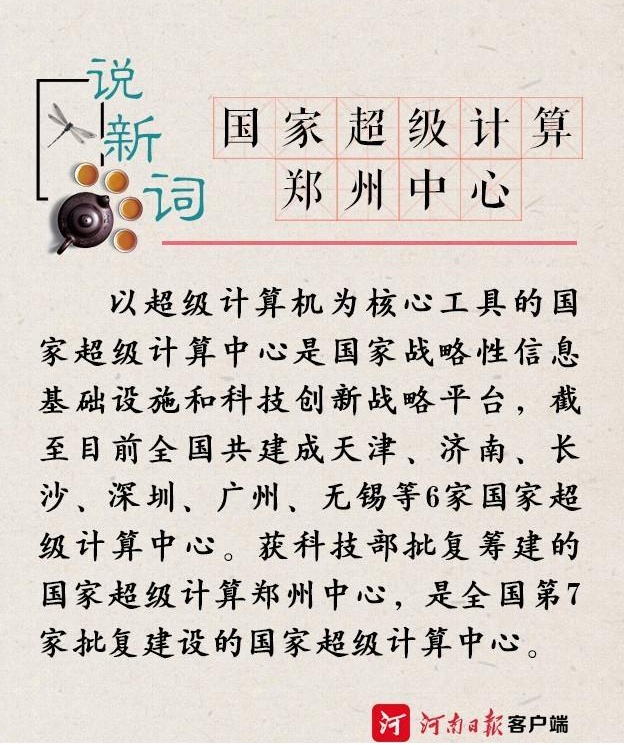 说新词
国家超级计算
郑州中心
以超级计算机为核心工具的国
家超级计算中心是国家战略性信息
基础设施和科技创新战略平台，截
至目前全国共建成天津、济南、长
沙、深圳、广州、无锡等6家国家超
级计算中心。获科技部批复筹建的
国家超级计算郑州中心，是全国第7
家批复建设的国家超级计算中心。
河 河南日报客户端